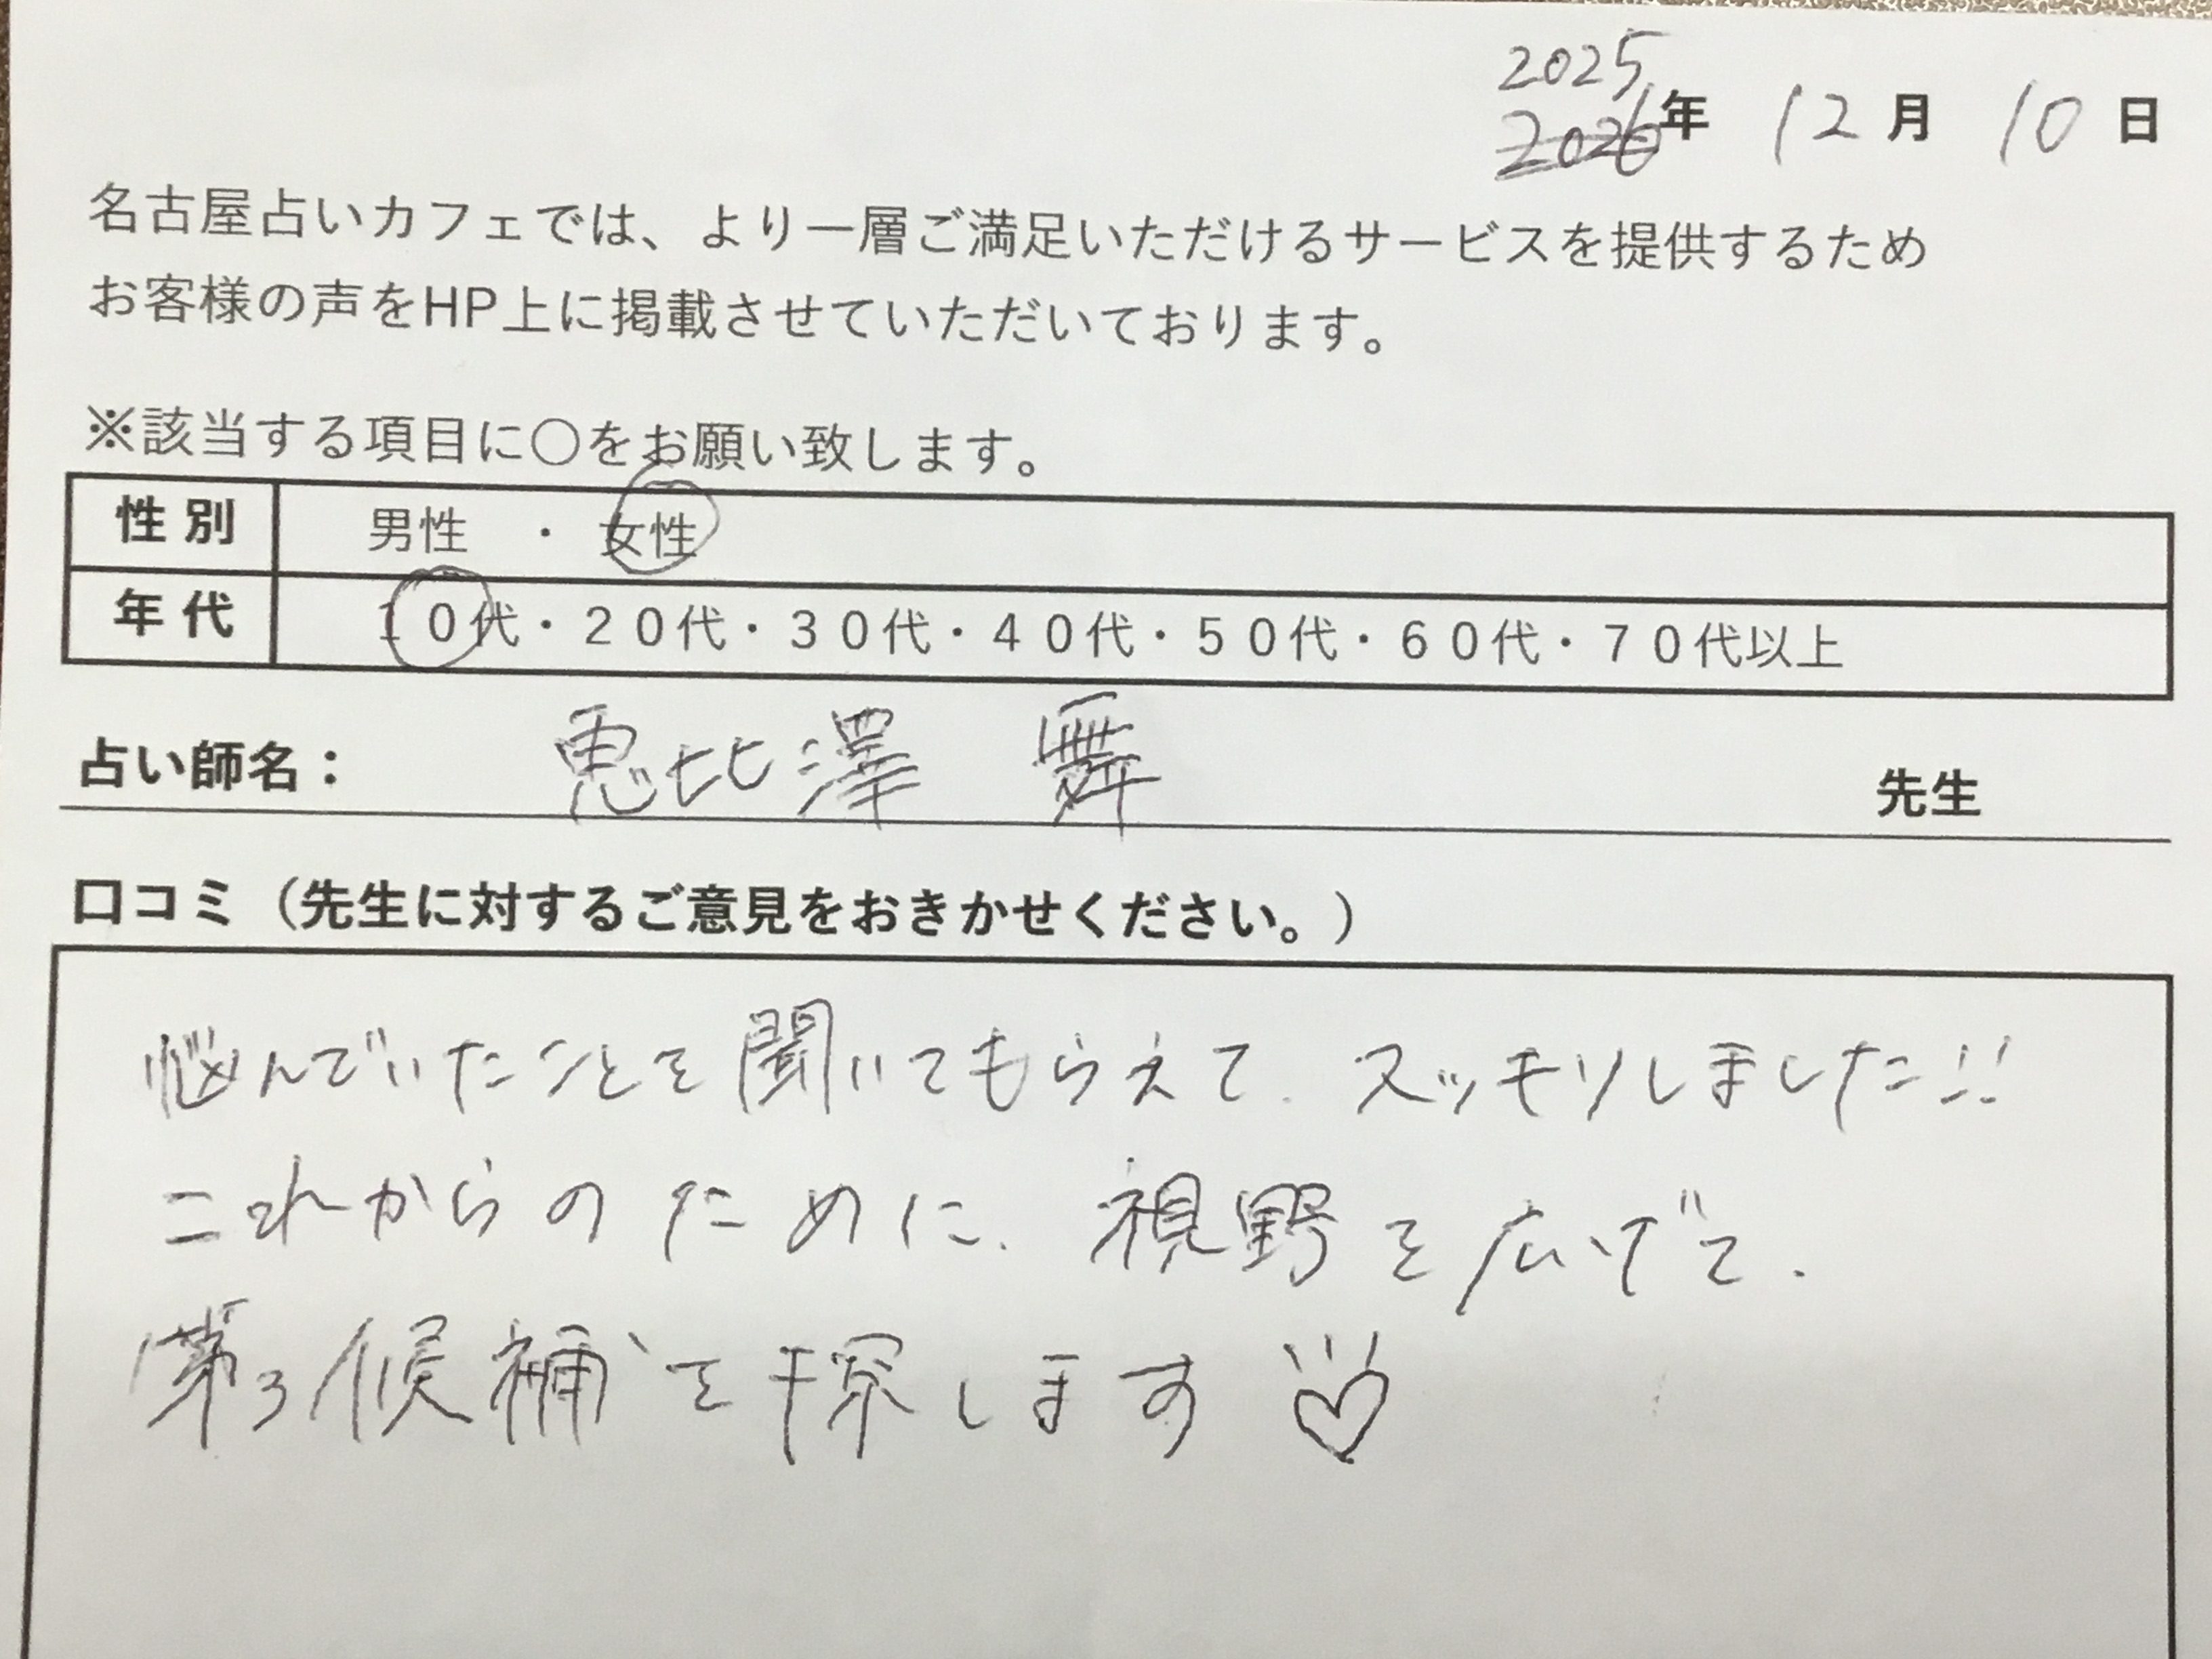 2025
2026年 12月 10日
名古屋占いカフェでは、より一層ご満足いただけるサービスを提供するため
お客様の声をHP上に掲載させていただいております。
※該当する項目に〇をお願い致します。
性別 男性 ・ 女性
年代 10代・20代・30代・40代・50代・60代・70代以上
占い師名： 恵比澤 舞 先生
口コミ（先生に対するご意見をおきかせください。）
悩んでいたことを聞いてもらえて、スッキリしました!!
これからのために、視野を広げて、
第3候補を探します♡